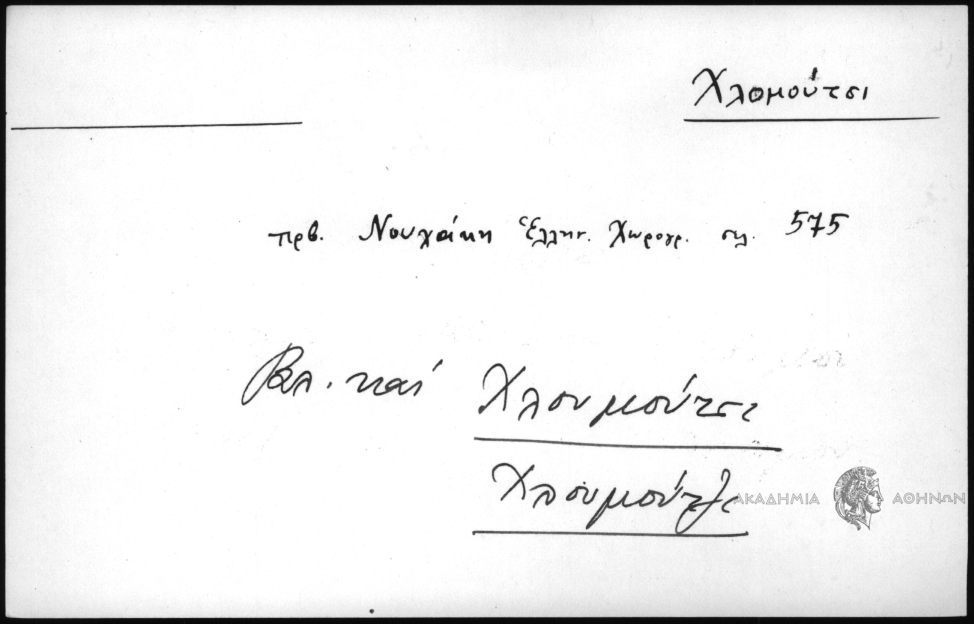 Χλομούτσι
πρβ. Νουχάκη Ἑλλην. Χωρογρ. σελ. 575
Βλ. καί Χλουμούτσι
Χλουμούτζι
ΑΚΑΔΗΜΙΑ ΑΘΗΝΩΝ